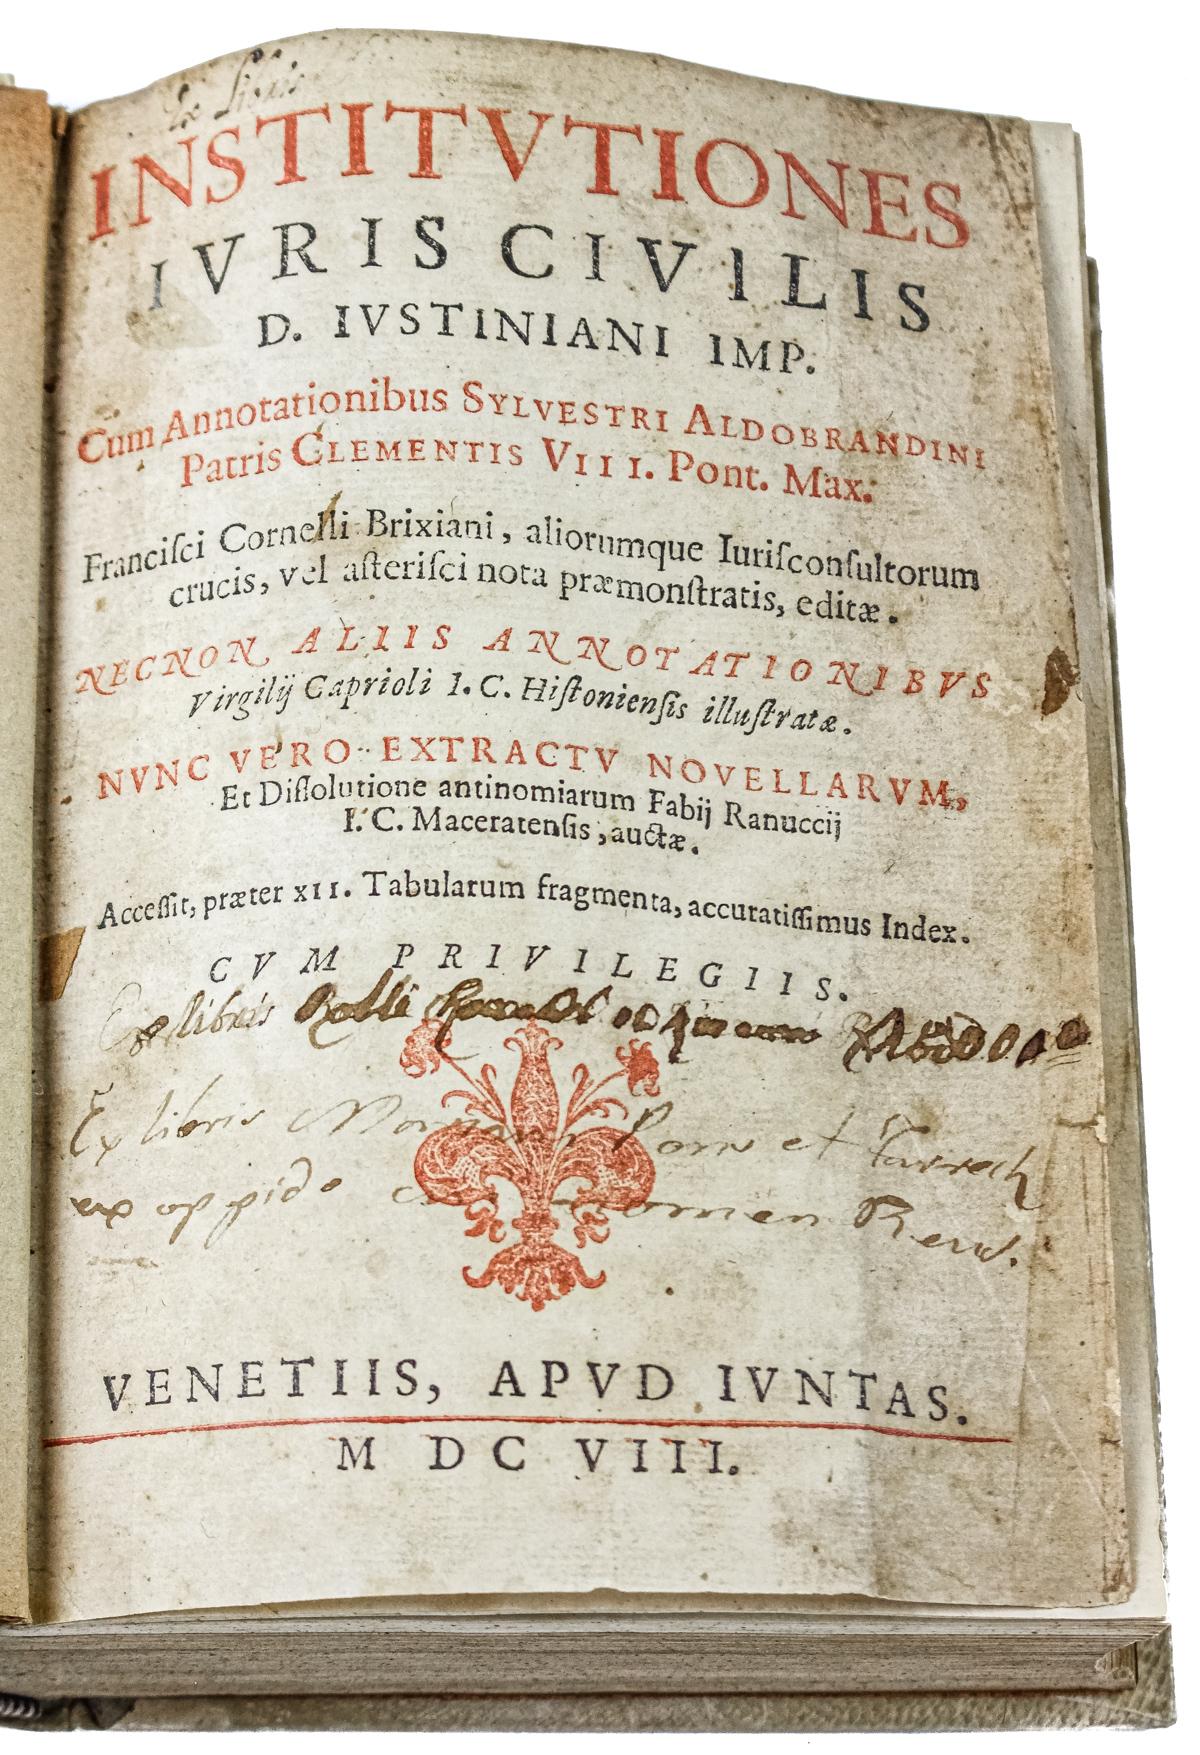 Ex Libris
INSTITVTIONES
IVRIS CIVILIS
D. IVSTINIANI IMP.
Cum Annotationibus SYLVESTRI ALDOBRANDINI
Patris CLEMENTIS VIII. Pont. Max.
Franciſci Cornelli Brixiani, aliorumque Iuriſconſultorum
crucis, vel aſteriſci nota præmonſtratis, editæ.
NECNON ALIIS ANNOTATIONIBVS
Virgilij Caprioli I. C. Hiſtonienſis illuſtratæ.
NVNC VERO EXTRACTV NOVELLARVM,
Et Diſſolutione antinomiarum Fabij Ranuccij
I. C. Maceratenſis, auctæ.
Acceſſit, præter XII. Tabularum fragmenta, accuratiſſimus Index.
CVM PRIVILEGIIS.
Ex libris
Ex libris et
ex oppido
VENETIIS, APVD IVNTAS.
M DC VIII.